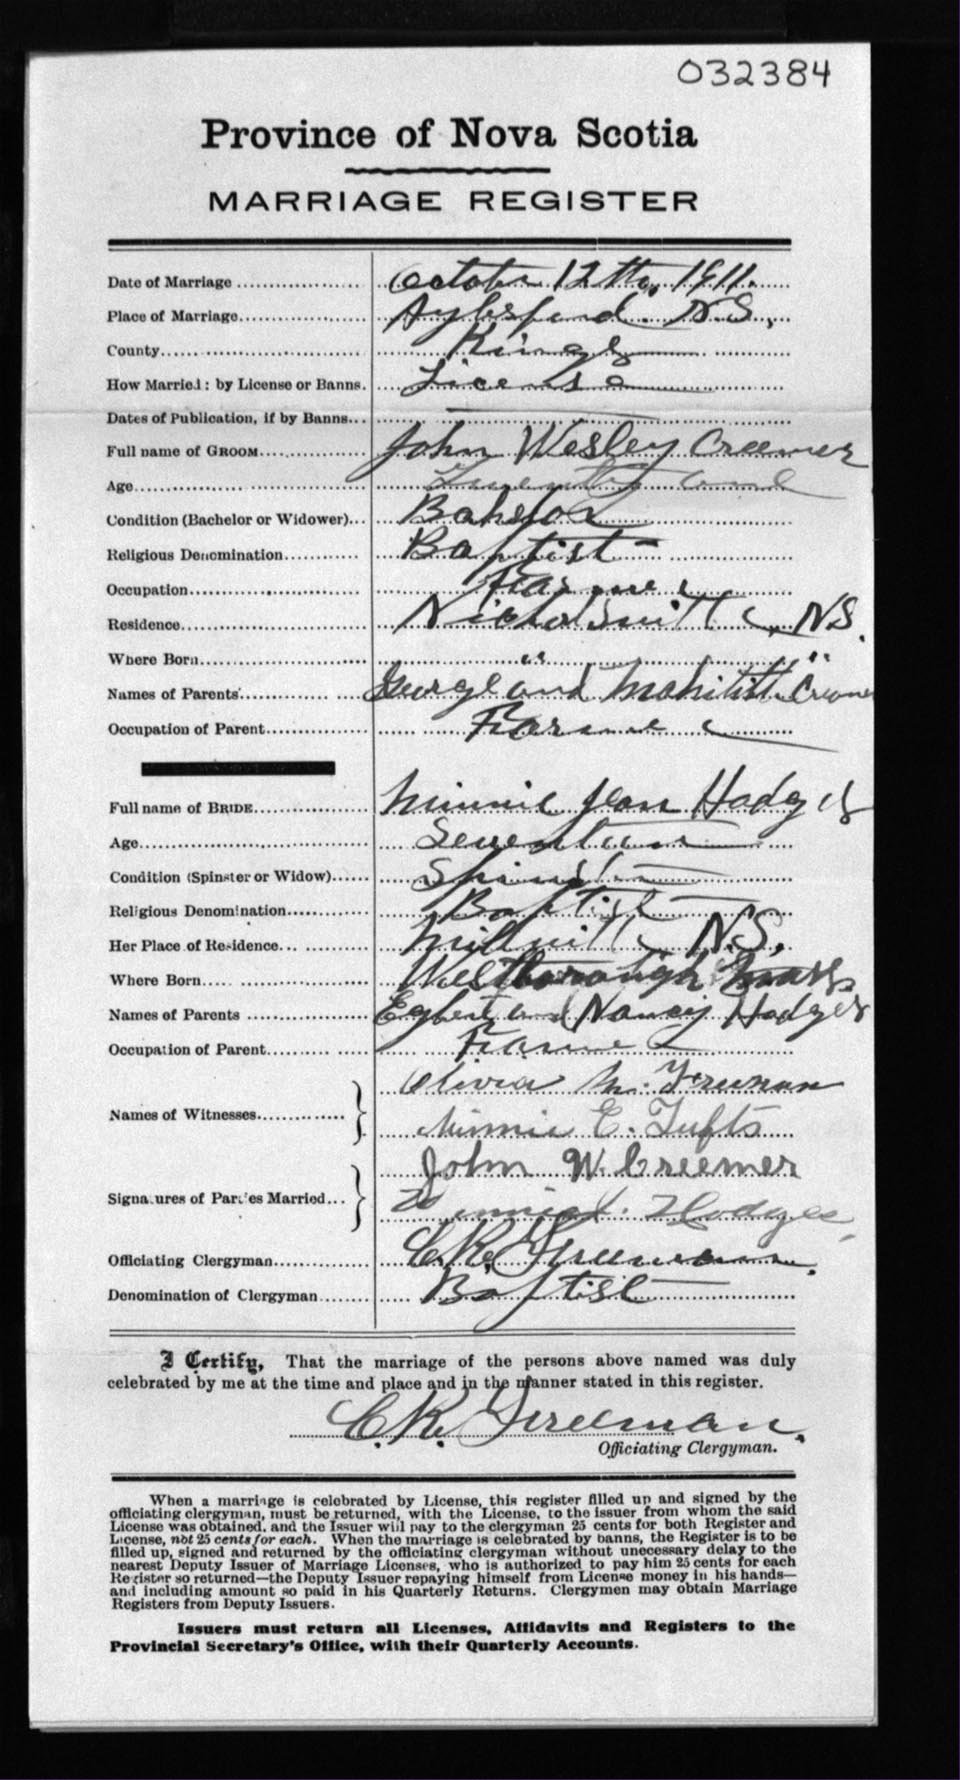 032384
Province of Nova Scotia
MARRIAGE REGISTER
Date of Marriage October 12th, 1911.
Place of Marriage Aylesford. N.S.,
County Kings
How Married: by License or Banns. License
Dates of Publication, if by Banns
Full name of GROOM John Wesley Creemer
Age Twenty one
Condition (Bachelor or Widower) Bahelor
Religious Denomination Baptist
Occupation Farmer
Residence Nicholsville, N.S.
Where Born " "
Names of Parents George and
Occupation of Parent Farmer
Full name of BRIDE Minnie Jean Hodges
Age Seventeen
Condition (Spinster or Widow) Spinster
Religious Denomination Baptist
Her Place of Residence Millville N.S.
Where Born Westborough Mass
Names of Parents Egbert and Nancy Hodges
Occupation of Parent Farmer
Names of Witnesses Olivia M. Freeman
Minnie E. Tufts
Signatures of Parties Married John W. Creemer
Minnie J. Hodges
Officiating Clergyman C.K. Freeman.
Denomination of Clergyman Baptist
I Certify, That the marriage of the persons above named was duly
celebrated by me at the time and place and in the manner stated in this register.
C.K. Freeman.
Officiating Clergyman.
When a marriage is celebrated by License, this register filled up and signed by the
officiating clergyman, must be returned, with the License, to the issuer from whom the said
License was obtained, and the Issuer will pay to the clergyman 25 cents for both Register and
License, not 25 cents for each. When the marriage is celebrated by banns, the Register is to be
filled up, signed and returned by the officiating clergyman without unecessary delay to the
nearest Deputy Issuer of Marriage Licenses, who is authorized to pay him 25 cents for each
Register so returned—the Deputy Issuer repaying himself from License money in his hands—
and including amount so paid in his Quarterly Returns. Clergymen may obtain Marriage
Registers from Deputy Issuers.
Issuers must return all Licenses, Affidavits and Registers to the
Provincial Secretary's Office, with their Quarterly Accounts.